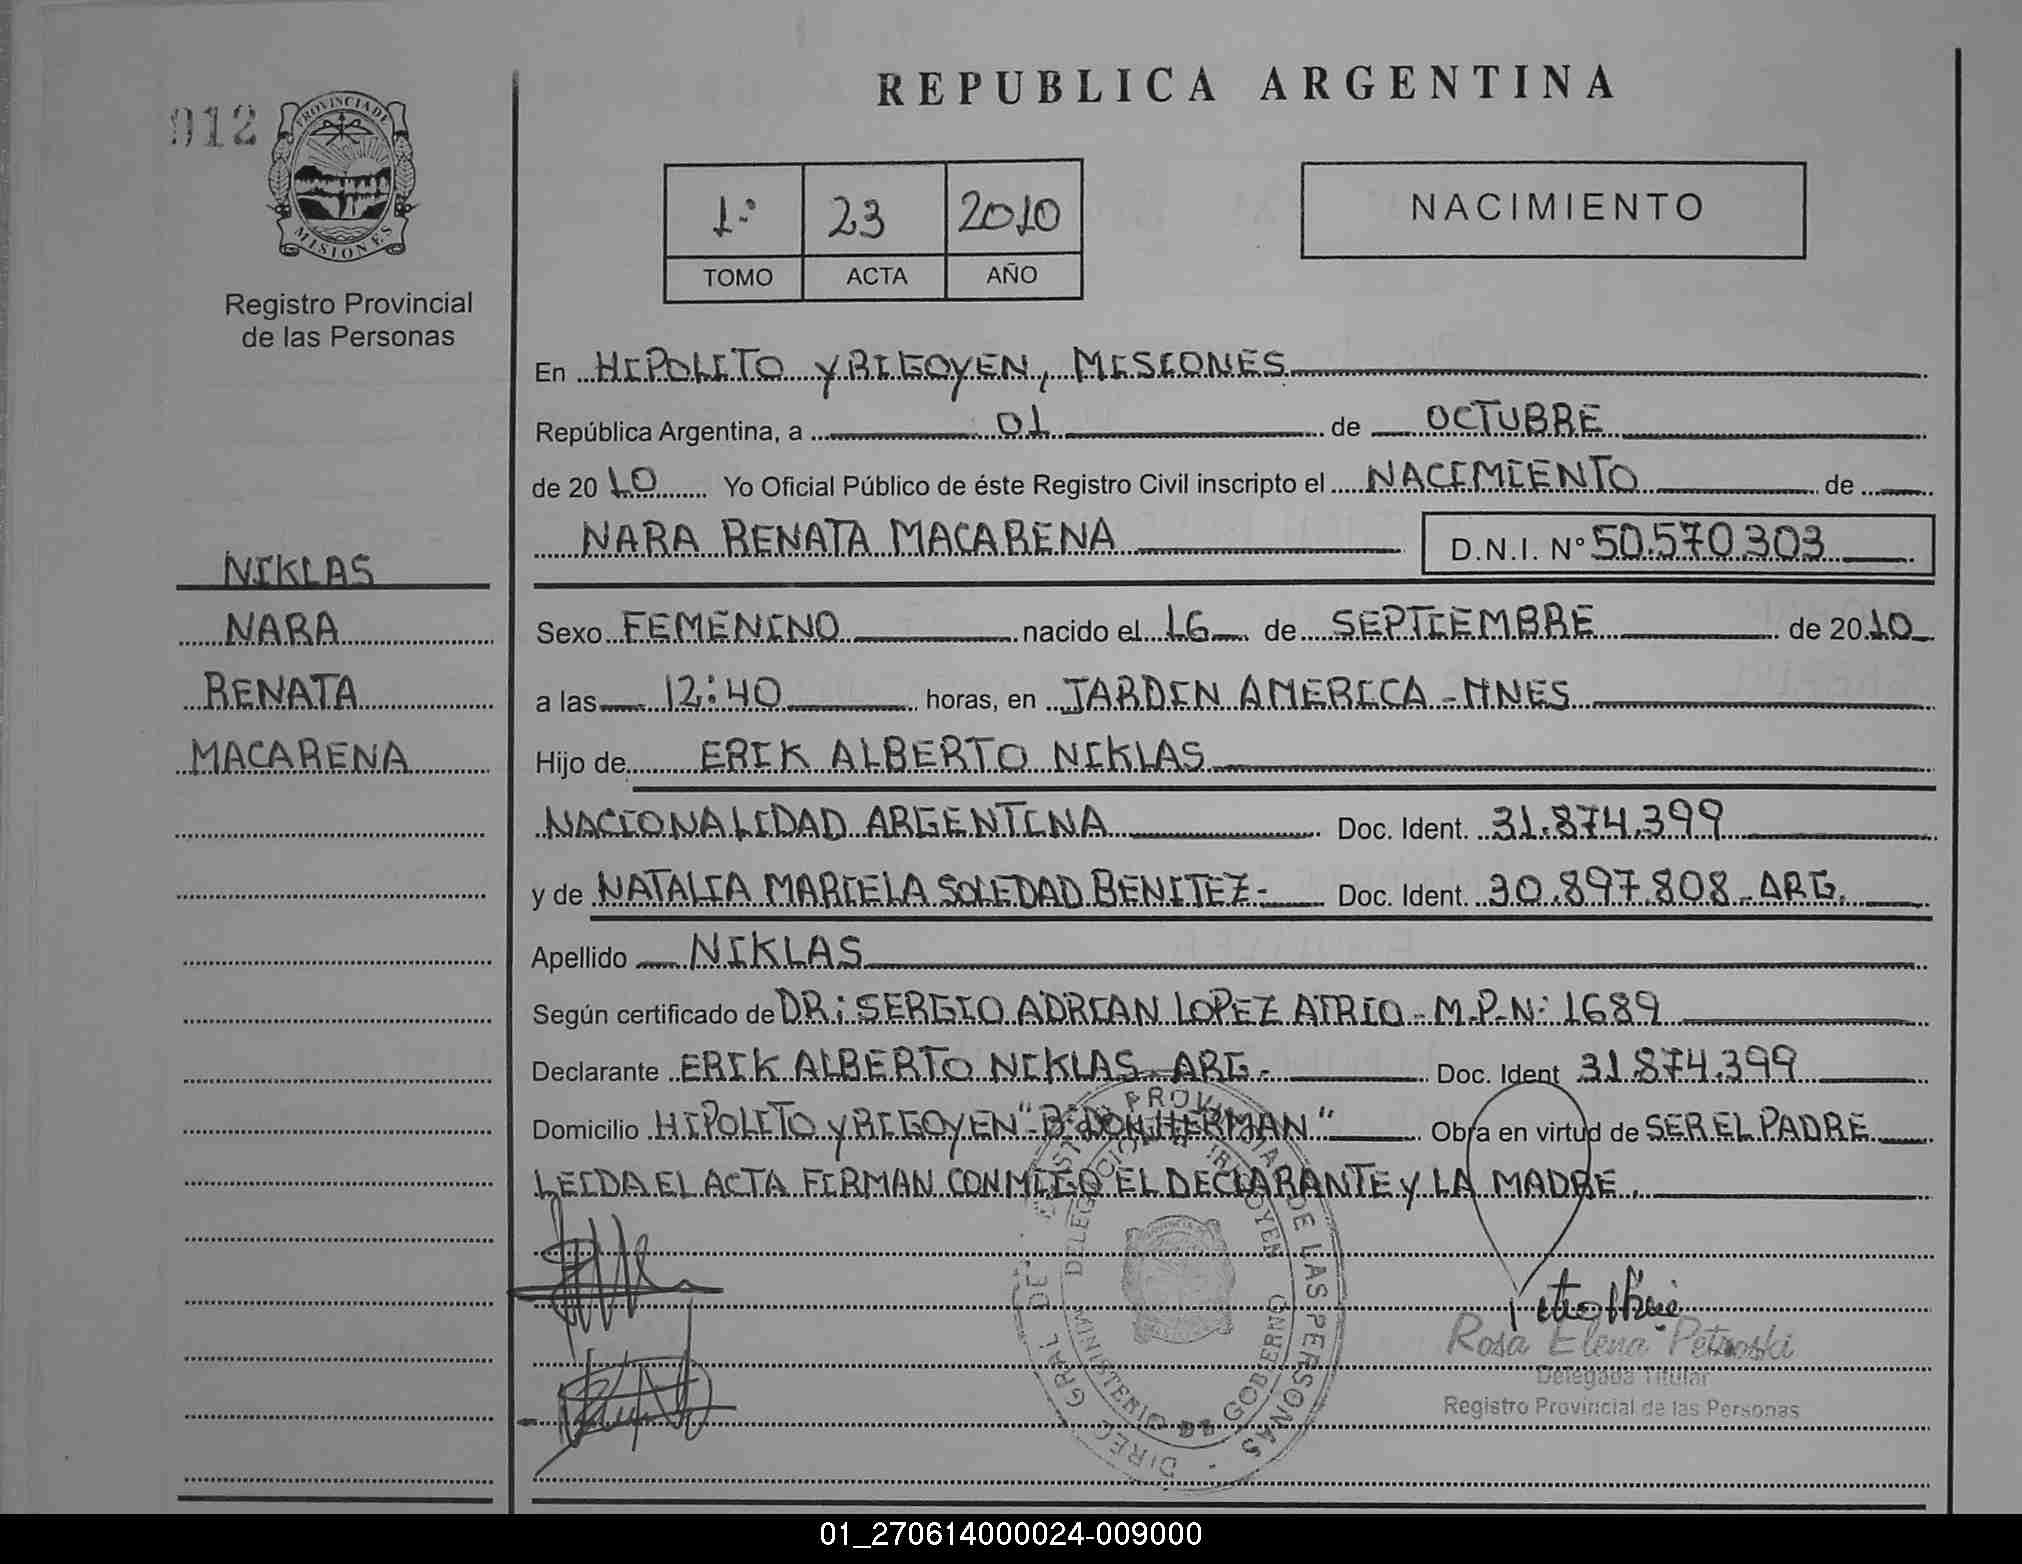 REPUBLICA ARGENTINA
012
PROVINCIA DE
MISIONES
Registro Provincial
de las Personas
1º 23 2010
TOMO ACTA AÑO
NACIMIENTO
En HIPOLITO YRIGOYEN, MISIONES
República Argentina, a 01 de OCTUBRE
de 20 10 Yo Oficial Público de éste Registro Civil inscripto el NACIMIENTO de
NARA RENATA MACARENA D.N.I. Nº 50.570.303
NIKLAS
NARA
RENATA
MACARENA
Sexo FEMENINO nacido el 16 de SEPTIEMBRE de 20 10
a las 12:40 horas, en JARDIN AMERICA - MNES
Hijo de ERIK ALBERTO NIKLAS
NACIONALIDAD ARGENTINA Doc. Ident. 31.874.399
y de NATALIA MARIELA SOLEDAD BENITEZ- Doc. Ident. 30.897.808 - ARG.
Apellido NIKLAS
Según certificado de DR: SERGIO ADRIAN LOPEZ ATRIO - M.P.N: 1689
Declarante ERIK ALBERTO NIKLAS - ARG - Doc. Ident 31.874.399
Domicilio HIPOLITO YRIGOYEN "Bº DON HERMAN" Obra en virtud de SER EL PADRE
LEIDA EL ACTA FIRMAN CONMIGO EL DECLARANTE Y LA MADRE.
DIREC. GRAL. DE PROVINCIAL DE LAS PERSONAS
MINISTERIO DE GOBIERNO
Rosa Elena Petroski
Delegada Titular
Registro Provincial de las Personas
01_270614000024-009000